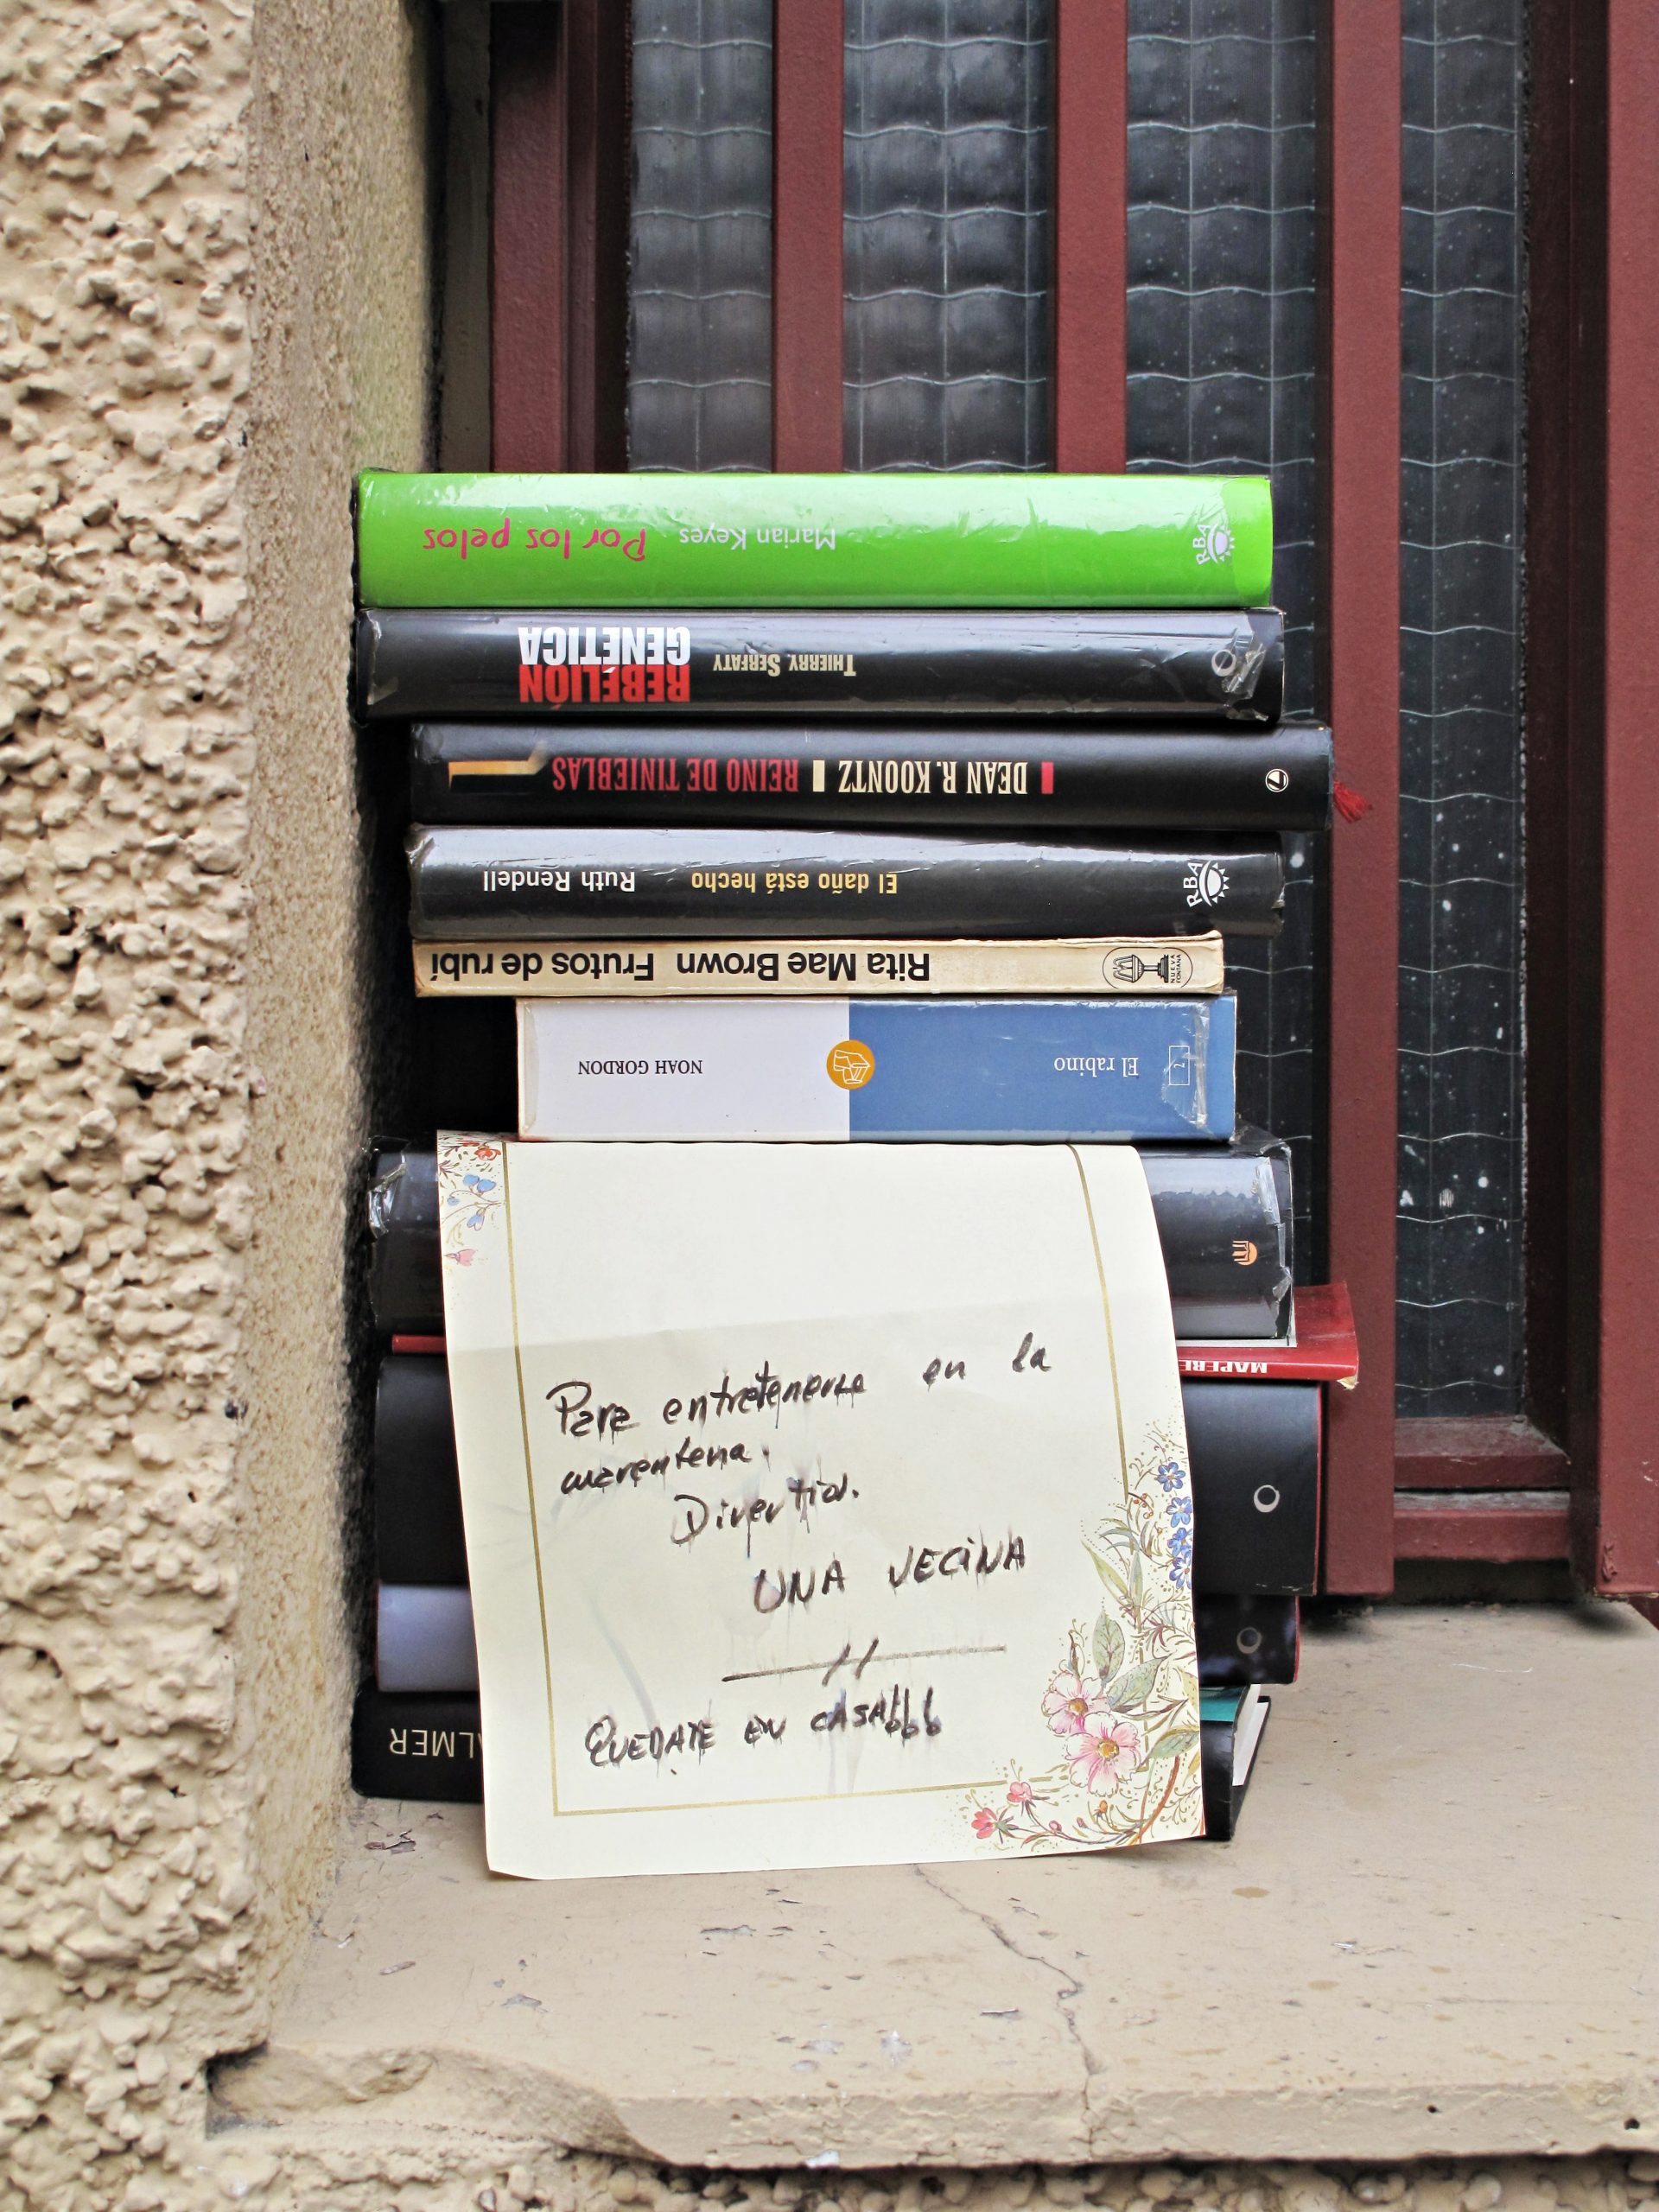 Por los pelos Marian Keyes RBA
REBELIÓN
GENÉTICA
THIERRY SERFATY
REINO DE TINIEBLAS DEAN R. KOONTZ
Ruth Rendell El daño está hecho RBA
Rita Mae Brown Frutos de rubí
NUEVA
FONTANA
NOAH GORDON El rabino
2
MAPFRE
Para entretenerse en la
cuarentena.
Divertid.
UNA VECINA
QUEDATE EN CASA
LMER